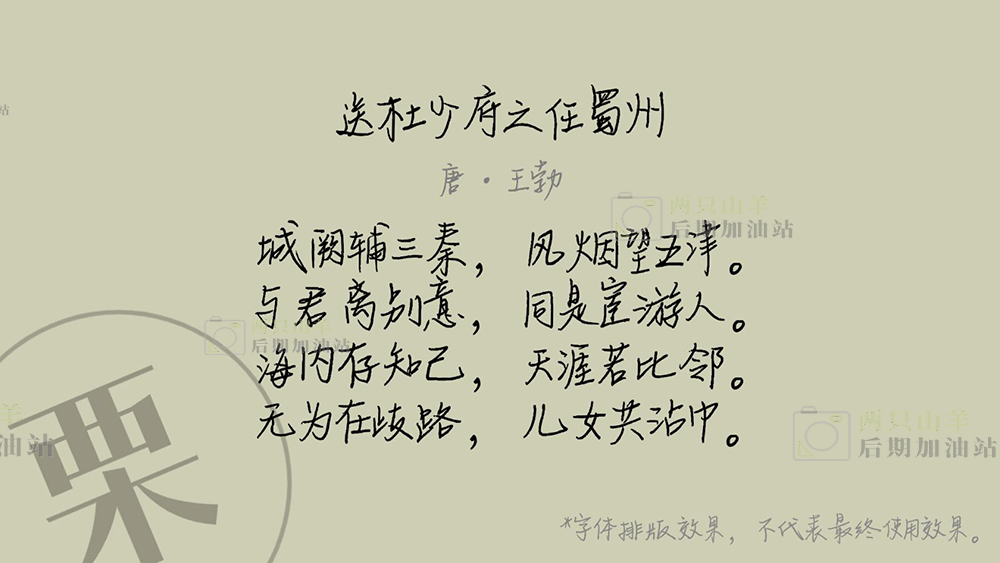 送杜少府之任蜀州
唐·王勃
城阙辅三秦，风烟望五津。
与君离别意，同是宦游人。
海内存知己，天涯若比邻。
无为在歧路，儿女共沾巾。
*字体排版效果，不代表最终使用效果。
栗
两只山羊
后期加油站
两只山羊
后期加油站
两只山羊
后期加油站
羊
油站
站